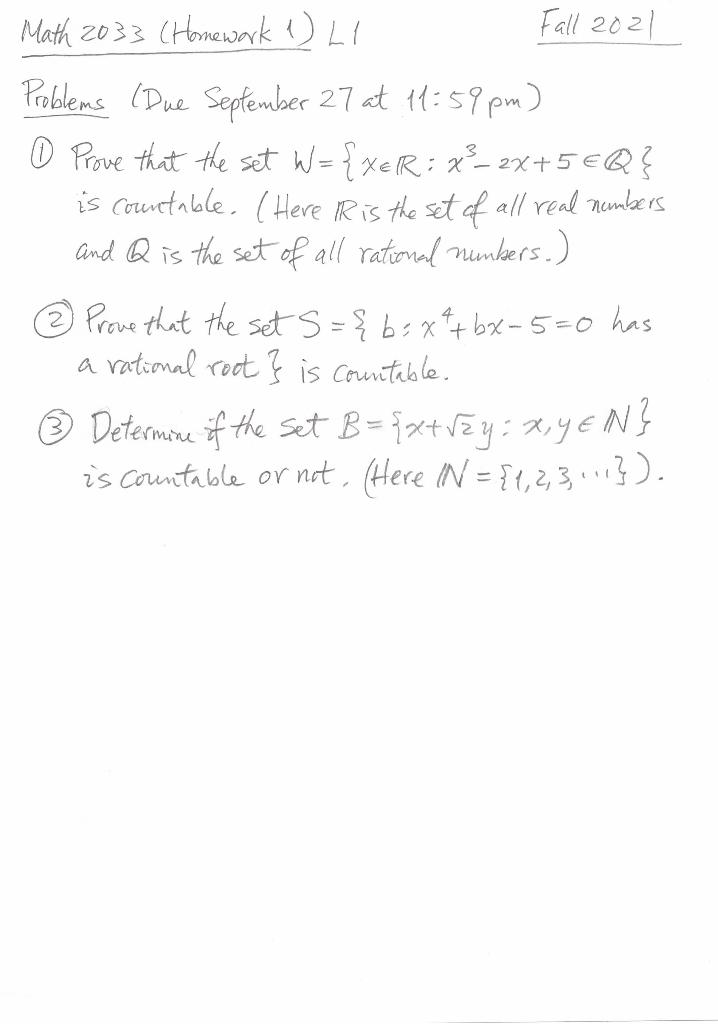 Math 2033 (Homework 1) L1 Fall 2021
Problems (Due September 27 at 11:59 pm)
① Prove that the set W = {x∈ℝ : x³ - 2x + 5 ∈ ℚ}
is countable. (Here ℝ is the set of all real numbers
and ℚ is the set of all rational numbers.)
② Prove that the set S = { b : x⁴ + bx - 5 = 0 has
a rational root } is countable.
③ Determine if the set B = {x + √2 y : x, y ∈ ℕ}
is countable or not. (Here ℕ = {1, 2, 3, ...}).